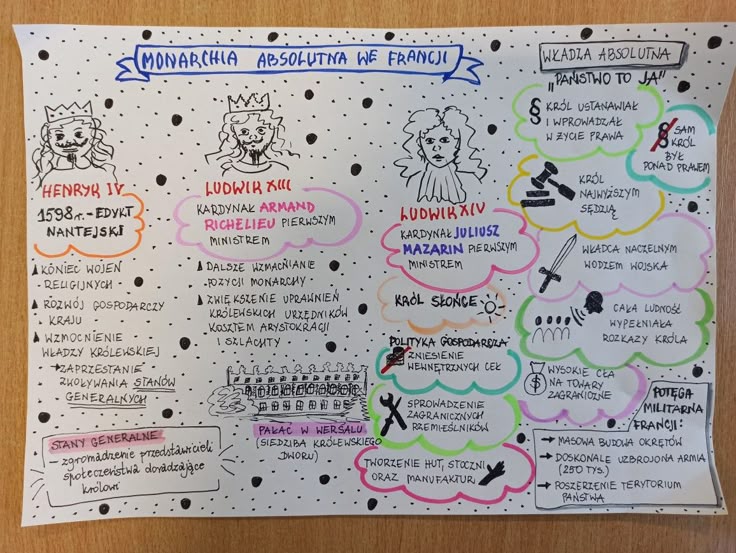 MONARCHIA ABSOLUTNA WE FRANCJI
HENRYK IV
1598r. - EDYKT
NANTEJSKI
KONIEC WOJEN
RELIGIJNYCH
ROZWÓJ GOSPODARCZY
KRAJU
WZMOCNIENIE
WŁADZY KRÓLEWSKIEJ
→ ZAPRZESTANIE
ZWOŁYWANIA STANÓW
GENERALNYCH
STANY GENERALNE
- zgromadzenie przedstawicieli
społeczeństwa doradzające
królowi
LUDWIK XIII
KARDYNAŁ ARMAND
RICHELIEU PIERWSZYM
MINISTREM
DALSZE WZMACNIANIE
POZYCJI MONARCHY
ZWIĘKSZENIE UPRAWNIEŃ
KRÓLEWSKICH URZĘDNIKÓW
KOSZTEM ARYSTOKRACJI
I SZLACHTY
PAŁAC W WERSALU
(SIEDZIBA KRÓLEWSKIEGO
DWORU)
LUDWIK XIV
KARDYNAŁ JULIUSZ
MAZARIN PIERWSZYM
MINISTREM
KRÓL SŁOŃCE
POLITYKA GOSPODARCZA
ZNIESIENIE
WEWNĘTRZNYCH CEŁ
SPROWADZENIE
ZAGRANICZNYCH
RZEMIEŚLNIKÓW
TWORZENIE HUT, STOCZNI
ORAZ MANUFAKTUR
WŁADZA ABSOLUTNA
"PAŃSTWO TO JA"
§ KRÓL USTANAWIAŁ
I WPROWADZAŁ
W ŻYCIE PRAWA
§ SAM
KRÓL
BYŁ
PONAD PRAWEM
KRÓL
NAJWYŻSZYM
SĘDZIĄ
WŁADCA NACZELNYM
WODZEM WOJSKA
CAŁA LUDNOŚĆ
WYPEŁNIAŁA
ROZKAZY KRÓLA
$
WYSOKIE CŁA
NA TOWARY
ZAGRANICZNE
POTĘGA
MILITARNA
FRANCJI:
→ MASOWA BUDOWA OKRĘTÓW
→ DOSKONALE UZBROJONA ARMIA
(250 TYS.)
→ POSZERZENIE TERYTORIUM
PAŃSTWA